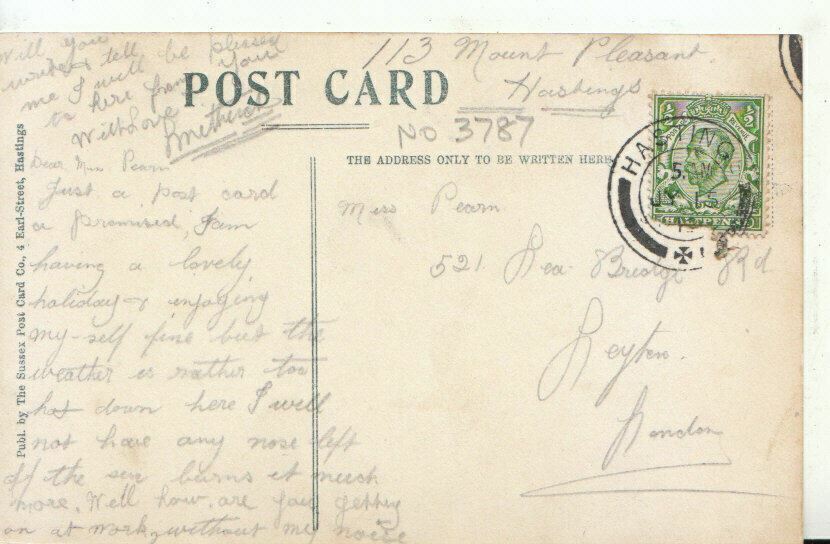 113 Mount Pleasant
Hastings
POST CARD
No 3787
THE ADDRESS ONLY TO BE WRITTEN HERE
HASTINGS
HALFPENNY
Miss Pearn
521 Lea Bridge Rd
Leyton.
London
Dear Miss Pearn
Just a post card
a promised, I am
having a lovely
holiday & enjoying
my-self fine but the
weather is rather too
hot down here I will
not have any nose left
if the sun burns it much
more. Well how are you getting
on at work, without my noise
Will you
write & tell
me I will be pleased
to here from you
With Love
Publ. by The Sussex Post Card Co., 4 Earl-Street, Hastings